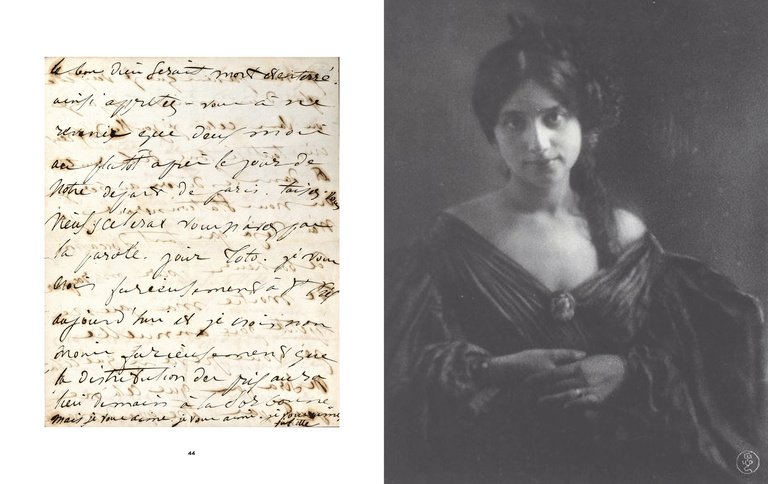 le bon dieu serait mort et enterré.
ainsi apprêtez-vous à ne
revenir que deux mois
au plutôt après le jour de
Notre départ de paris. taisez-vous
vieux scélérat vous n'avez pas
la parole. jour Toto. je vous
furieusement à
aujourd'hui et je crois non
moins furieusement que
la distribution des prix aura
lieu demain à la Sorbonne
mais je vous aime, je vous aime,
44